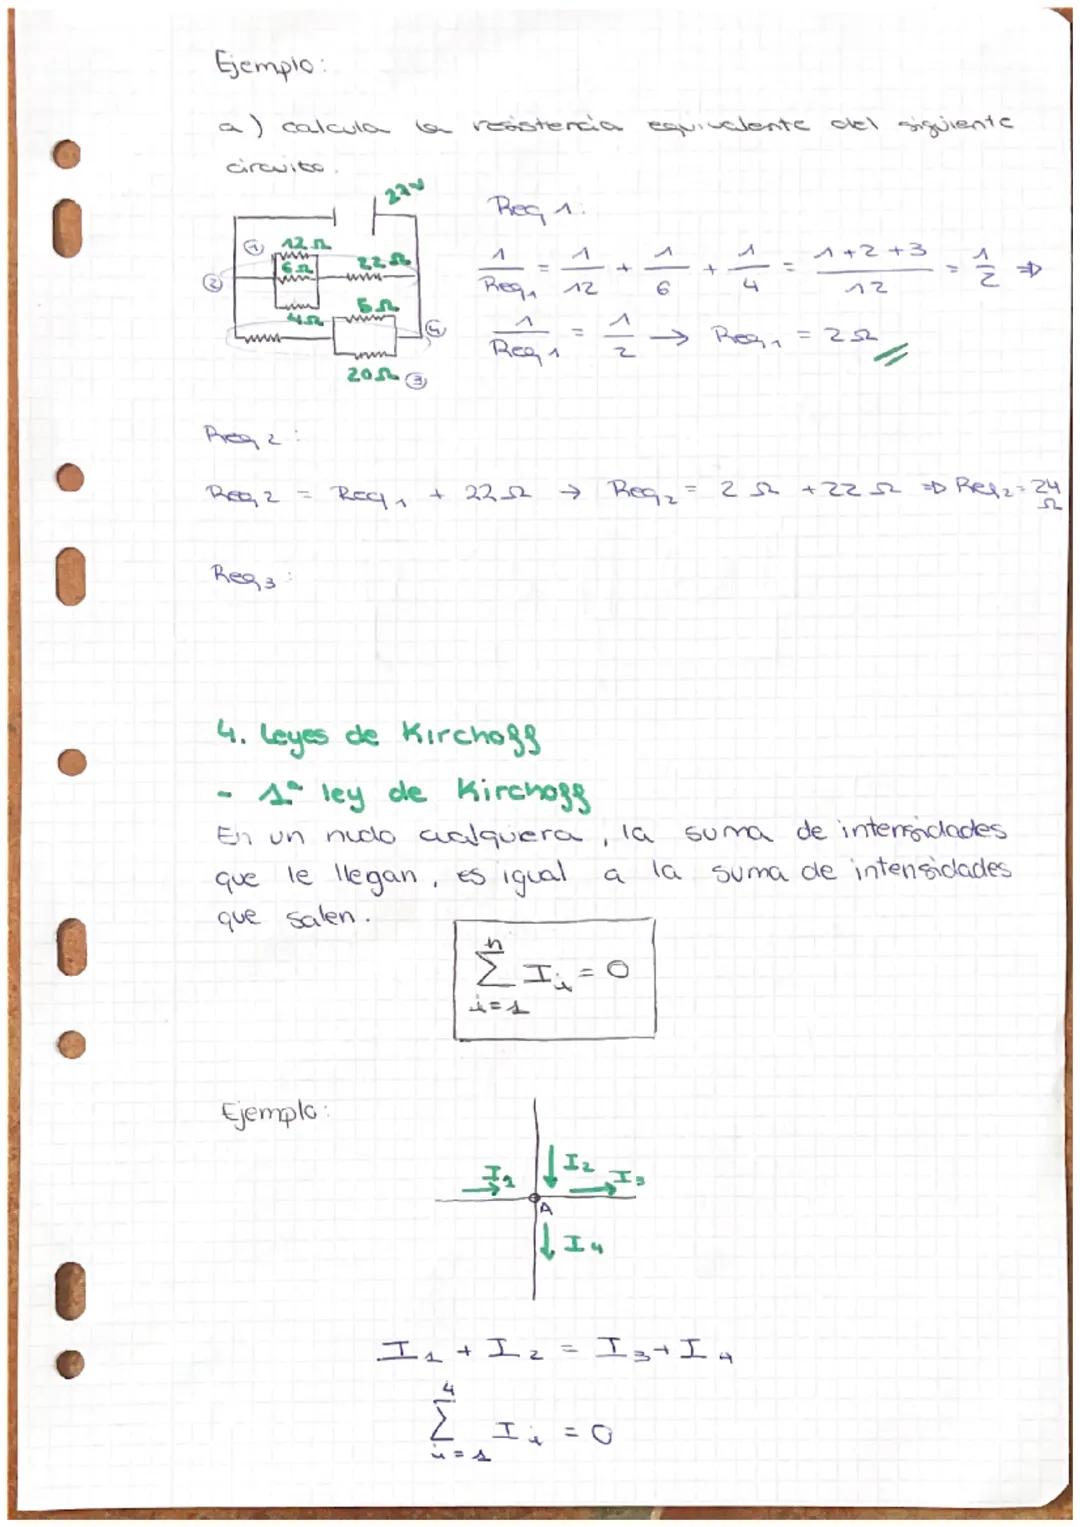 Ejemplo:
a) calcula la resistencia equivalente del siguiente
circuito.
1 12Ω
6Ω
22Ω
2
4Ω
5Ω
4
20Ω 3
Req 1:
1/Req1 = 1/12 + 1/6 + 1/4 = 1+2+3/12 = 1/2 ⇒
1/Req1 = 1/2 → Req1 = 2Ω
Req2:
Req2 = Req1 + 22Ω → Req2 = 2Ω + 22Ω ⇒ Req2 = 24Ω
Req3:
4. Leyes de Kirchoff
- 1ª ley de Kirchoff
En un nudo cualquiera, la suma de intensidades
que le llegan, es igual a la suma de intensidades
que salen.
n
Σ Ii = 0
i=1
Ejemplo:
I1 I2 I3
A
I4
I1 + I2 = I3 + I4
4
Σ Ii = 0
i=1